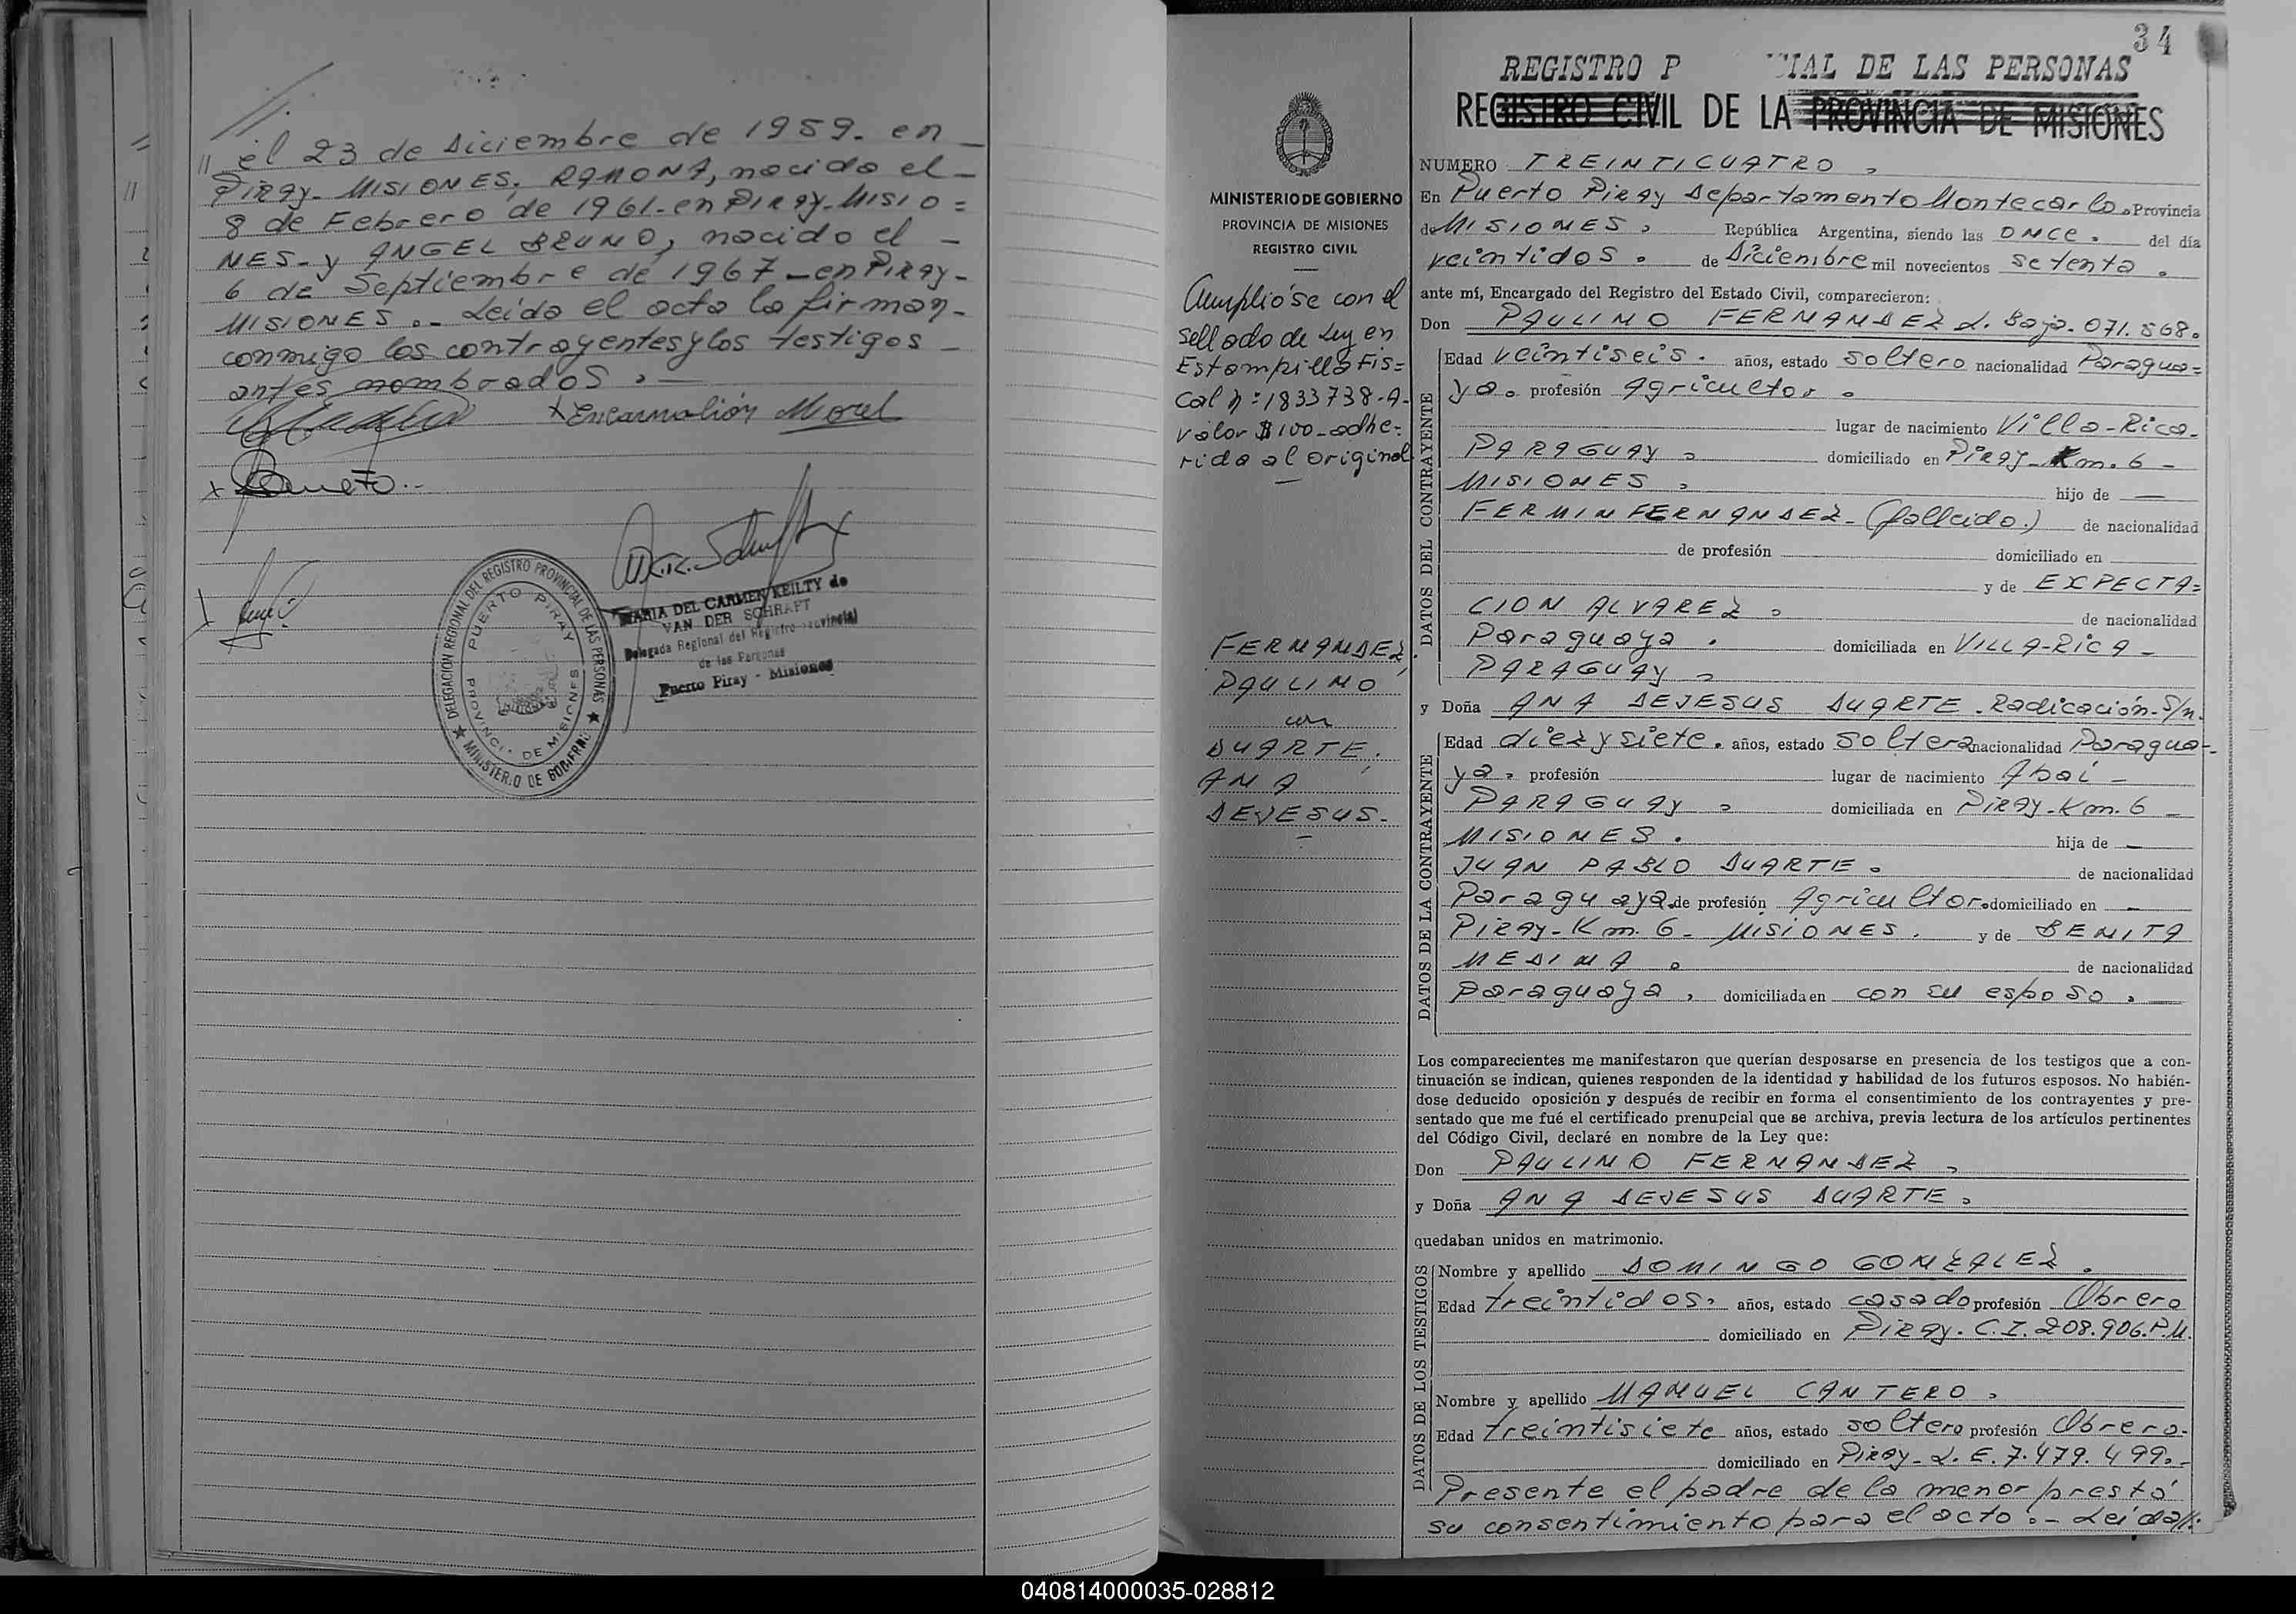 // el 23 de diciembre de 1959. en
PIRAY-MISIONES; RAMONA, nacida el-
8 de Febrero de 1961.en PIRAY-MISIO=
NES-y ANGEL BRUNO, nacido el -
6 de Septiembre de 1967-en PIRAY-
MISIONES.- Leída el acta la firman-
conmigo los contrayentes y los testigos -
antes nombrados.-
x Encarnación Morel
MARIA DEL CARMEN KEILTY de
VAN DER SCHRAFT
Delegada Regional del Registro Provincial
de las Personas
Puerto Piray - Misiones
DELEGACION REGIONAL DEL REGISTRO PROVINCIAL DE LAS PERSONAS
MINISTERIO DE GOBIERNO
PUERTO PIRAY
PROVINCIA DE MISIONES
34
REGISTRO P CIAL DE LAS PERSONAS
REGISTRO CIVIL DE LA PROVINCIA DE MISIONES
MINISTERIO DE GOBIERNO
PROVINCIA DE MISIONES
REGISTRO CIVIL
Cumplióse con el
sellado de Ley en
Estampilla Fis=
cal n: 1833738-A-
valor $100-adhe-
rida al original
FERNANDEZ,
PAULINO
con
DUARTE,
ANA
DEJESUS.-
NUMERO TREINTICUATRO.
En Puerto Piray Departamento Montecarlo. Provincia
de MISIONES, República Argentina, siendo las once. del día
veintidos. de Diciembre mil novecientos setenta.
ante mí, Encargado del Registro del Estado Civil, comparecieron:
Don PAULINO FERNANDEZ L. Baja.071.568.
DATOS DEL CONTRAYENTE
Edad veintiseis. años, estado soltero nacionalidad Paragua=
ya. profesión Agricultor.
lugar de nacimiento Villa-Rica-
PARAGUAY, domiciliado en PIRAY-Km.6-
MISIONES, hijo de —
FERMIN FERNANDEZ-(fallecido.) de nacionalidad
de profesión domiciliado en
y de EXPECTA=
CION ALVAREZ, de nacionalidad
Paraguaya. domiciliada en VILLA-RICA-
PARAGUAY,
y Doña ANA DEJESUS DUARTE.Radicación-S/n.
DATOS DE LA CONTRAYENTE
Edad diez y siete. años, estado soltera nacionalidad Paragua-
ya, profesión lugar de nacimiento Abaí-
PARAGUAY, domiciliada en PIRAY-Km.6-
MISIONES. hija de —
JUAN PABLO DUARTE. de nacionalidad
Paraguaya. de profesión Agricultor. domiciliado en —
PIRAY-Km.6-MISIONES. y de BENITA
MEDINA. de nacionalidad
Paraguaya, domiciliada en con su esposo.
Los comparecientes me manifestaron que querían desposarse en presencia de los testigos que a con-
tinuación se indican, quienes responden de la identidad y habilidad de los futuros esposos. No habién-
dose deducido oposición y después de recibir en forma el consentimiento de los contrayentes y pre-
sentado que me fué el certificado prenupcial que se archiva, previa lectura de los artículos pertinentes
del Código Civil, declaré en nombre de la Ley que:
Don PAULINO FERNANDEZ,
y Doña ANA DEJESUS DUARTE.
quedaban unidos en matrimonio.
DATOS DE LOS TESTIGOS
Nombre y apellido DOMINGO GONZALEZ.
Edad treintidos. años, estado casado profesión Obrero
domiciliado en PIRAY-C.I.208.906.P.M.
Nombre y apellido MANUEL CANTERO.
Edad treintisiete años, estado soltero profesión Obrero-
domiciliado en PIRAY-L.E.7.479.499.-
Presente el padre de la menor prestó
su consentimiento para el acto.- Leída//:
040814000035-028812